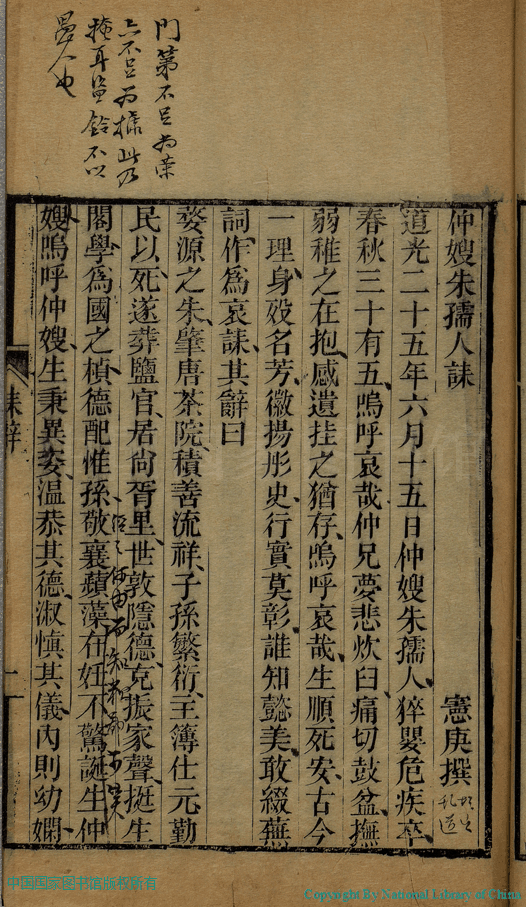 門第不足為榮
六不足為據此乃
掩耳盜鈴不以
愚人也
仲嫂朱孺人誄
憲庚撰
道光二十五年六月十五日仲嫂朱孺人猝嬰危疾卒
春秋三十有五嗚呼哀哉仲兄夢悲炊臼痛切鼓盆撫
弱稚之在抱感遺挂之猶存嗚呼哀哉生順死安古今
一理身歿名芳徽揚彤史行實莫彰誰知懿美敢綴蕪
詞作為哀誄其辭曰
婺源之朱肇唐茶院積善流祥子孫繁衍王簿仕元勤
民以死遂葬鹽官居尙胥里世敦隱德克振家聲挺生
閣學為國之楨德配惟孫敬襄蘋藻在妊不驚誕生仲
嫂嗚呼仲嫂生秉異姿溫恭其德淑愼其儀內則幼嫻
誄辭
中国国家图书馆版权所有
Copyright By National Library of China